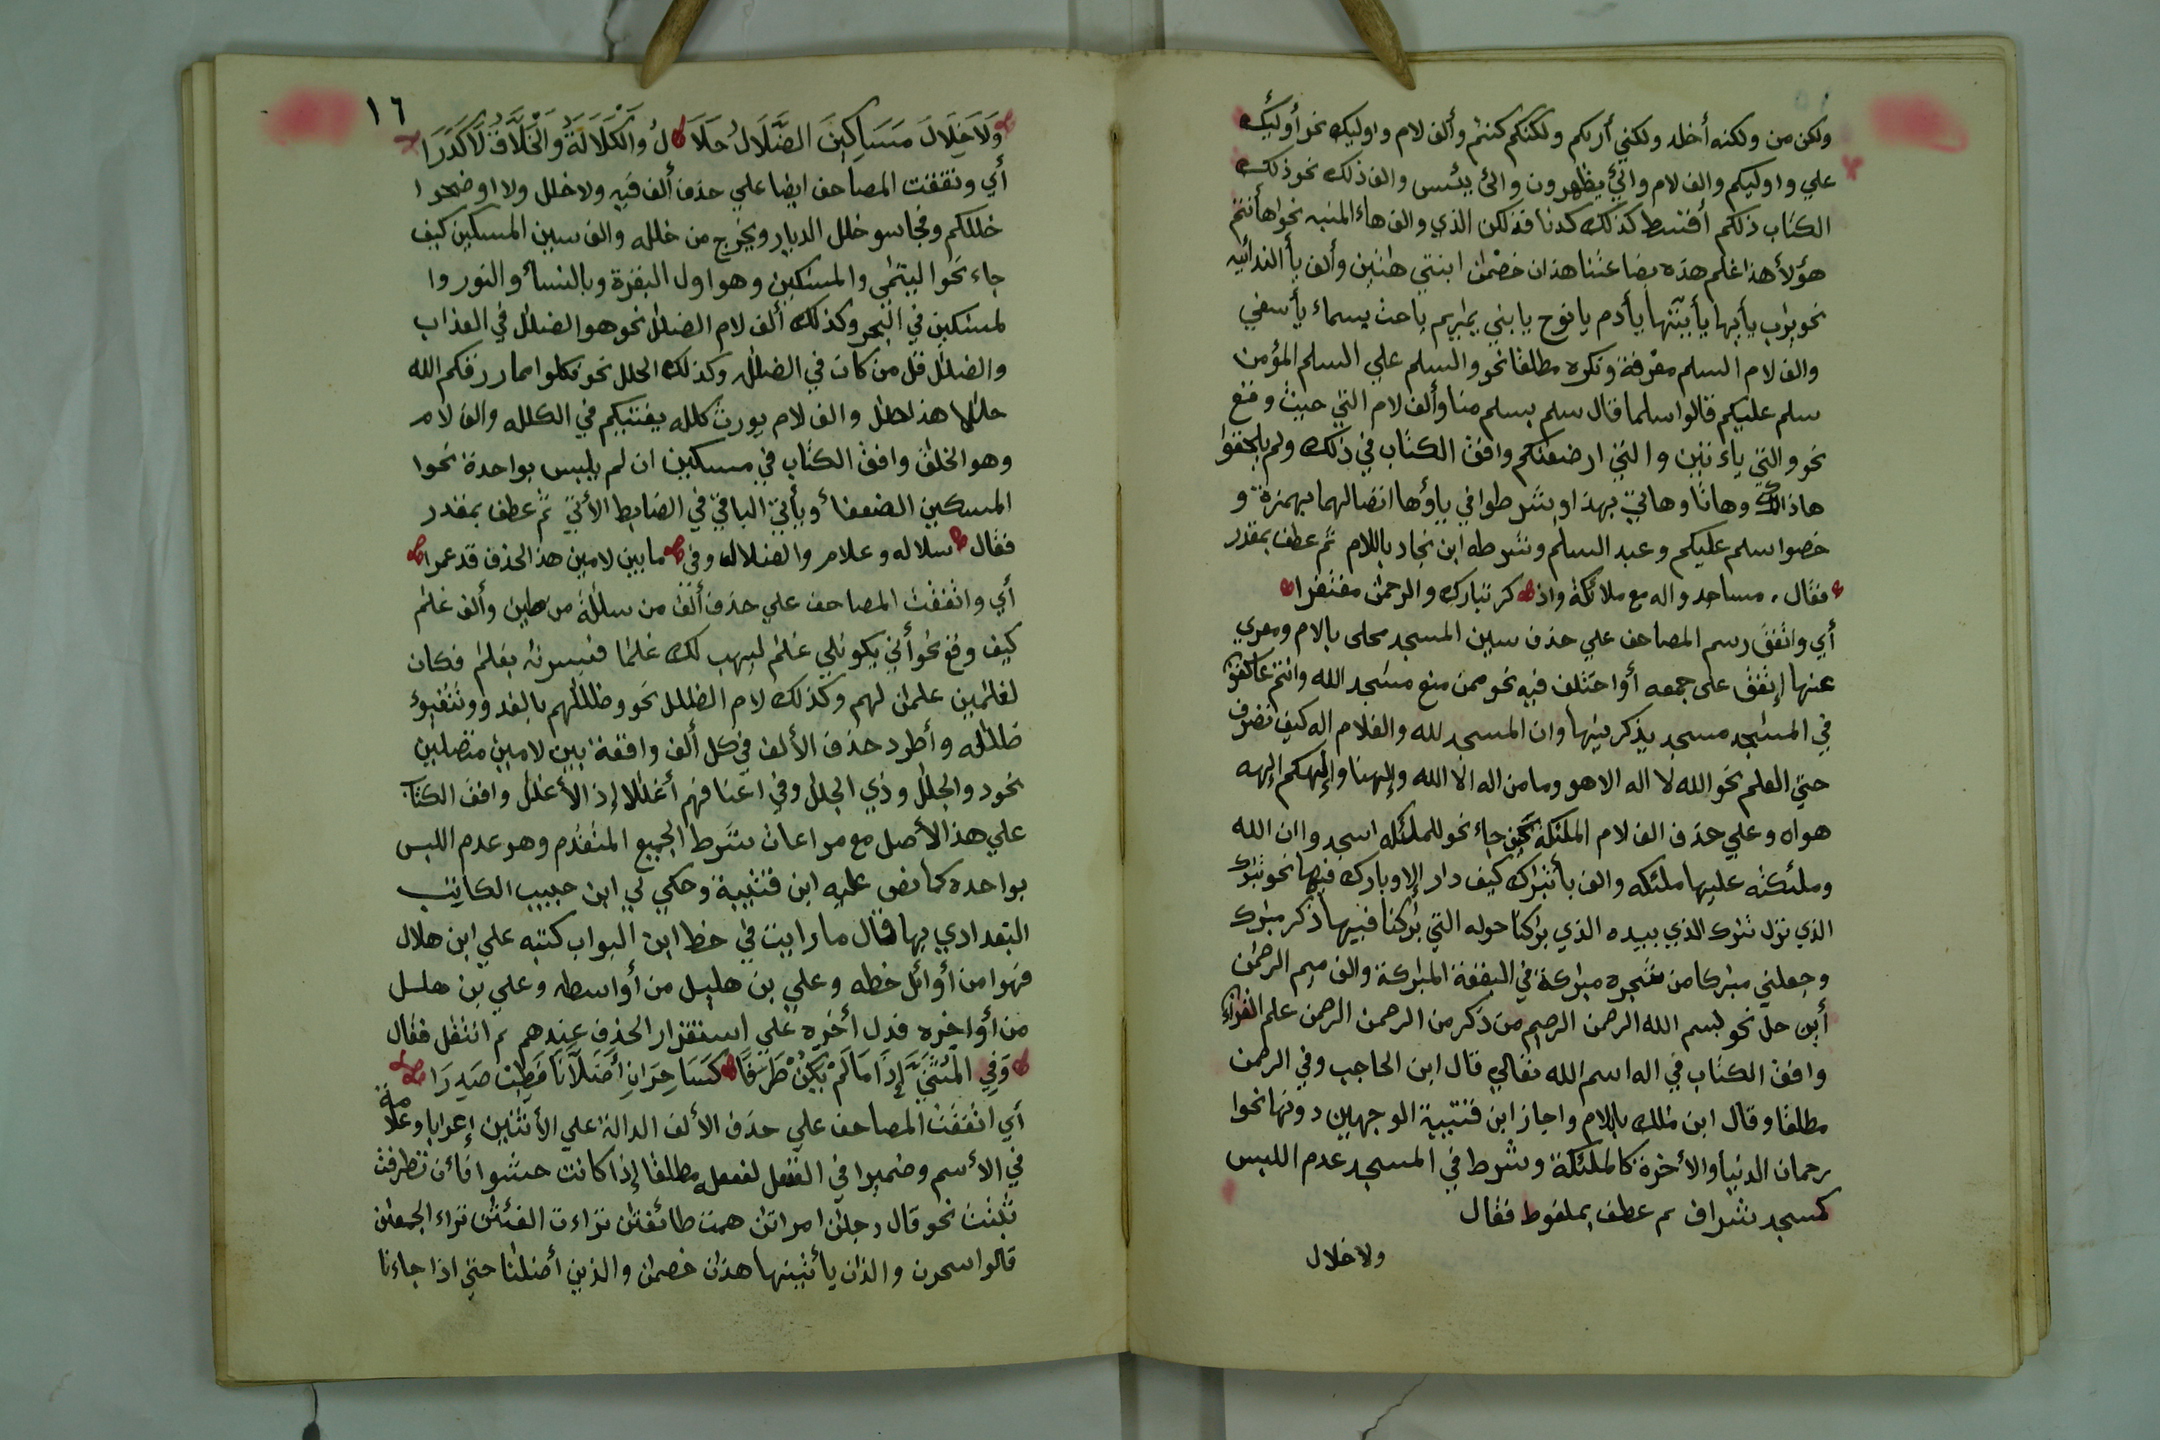 ولكن من ولكنه أخلد ولكني أريكم ولكنكم كنتم وألف لام واوليك نحو أولئك
علي واوليكم والف لام والئ يظهرون والئ يئس والف ذلك نحو ذلك
الكتاب ذلكم أقسط كذلك كدنا فذلكن الذي والف هاء المنبه نحو هأنتم
هؤلأ هذا غلم هذه بضاعتنا هذان خصمن ابنتي هتين وألف يأ الندائيه
نحو يرب يأيها يأيتها يأدم يانوح يابني يمريم ياحث يسماء يأسفي
والف لام السلم معرفة ونكره مطلقا نحو والسلم علي السلم المؤمن
سلم عليكم قالوا سلما قال سلم بسلم منا وألف لام التي حيث وقع
نحو والتي ياءتين والتي ارضعنكم وافق الكتاب في ذلك ولم يلحقوا
هاذاك وهاتا وهاتي بهذا وشرطوا في ياؤها اتصالهما بهمزة و
خصوا سلم عليكم وعبد السلم وشرطه ابن نجاد باللام ثم عطف بمقدر
فقال مساجد واله مع ملائكة واذكر تبارك والرحمن مغتفرا
أي واتفق رسم المصاحف علي حذف سين المسجد محلى بالام ومعري
عنها إتفق على جمعه أو اختلف فيه نحو ممن منع مسجد الله وانتم عاكفون
في المسجد مسجد يذكر فيها وان المسجد لله والف لام اله كيف تصرف
حتي العلم نحو الله لا اله الا هو وما من اله الا الله والهنا وإلهكم إلهه
هواه وعلي حذف الف لام الملئكة كيف جاء نحو للملئكه اسجدوا ان الله
وملئكته عليها ملئكه والف بأ تبرك كيف دار إلا وبارك فيها نحو تبرك
الذي نزل تبرك الذي بيده الذي بركنا حوله التي بركنا فيها ذكر مبرك
وجعلني مبركا من شجره مبركة في البقعة المبركة والف ميم الرحمن
أين حل نحو بسم الله الرحمن الرحيم من ذكر من الرحمن الرحمن علم القرآن
وافق الكتاب في اله اسم الله تعالي قال ابن الحاجب وفي الرحمن
مطلقا وقال ابن ملك باللام واجاز ابن قتيبة الوجهين دونها نحوا
رحمان الدنيا والأخرة كالملئكة وشرط في المسجد عدم اللبس
كسجد شراف ثم عطف بملفوظ فقال
ولا خلال
١٦
ولَا خِلَالَ مَسَاكِينَ الضَّلَالُ حَلَالُ والكَلَالَةُ وَالْخَلَّاقُ لَا كَدَرَا
أي وتقفت المصاحف ايضا علي حذف ألف فيه ولا خلل ولا اوضحوا
خللكم وفجاسو خلل الديار ويخرج من خلله والف سين المسكين كيف
جاء نحو اليتمي والمسكين وهو اول البقرة وبالنساء والنور وا
لمسكين في البحر وكذلك ألف لام الضلل نحو هو الضلل في العذاب
والضلل قل من كان في الضلله وكذلك الحلل نحو فكلوا مما رزقكم الله
حللا هذا حلل والف لام يورث كلله يفتيكم في الكلله والف لام
وهو الخلق وافق الكتاب في مسكين ان لم يلبس بواحدة نحوا
المسكين الضعفاء ويأتي الباقي في الضابط الأتي ثم عطف بمقدر
فقال سلاله وعلام والضلاله وفي ما بين لامين هذا الحذف قد عمرا
أي واتفقت المصاحف علي حذف ألف من سللة من طين وألف غلم
كيف وقع نحو أني يكون لي غلم ليهب لك غلما فبشرنه بغلم فكان
لغلمين علمن لهم وكذلك لام الظلل نحو وظللهم بالغدو وتتفيؤا
ظلله وأطرد حذف الألف في كل ألف واقعة بين لامين متصلين
نحو والجلل وذي الجلل وفي اعناقهم أغللا إذ الأغلل وافق الكتاب
علي هذا الأصل مع مراعات شرط الجميع المتقدم وهو عدم اللبس
بواحده كما نص عليه ابن قتيبة وحكي لي ابن حبيب الكاتب
البغدادي بها قال ما رايت في خط ابن البواب كتبه علي ابن هلال
فهوا من أوائل خطه وعلي بن هليل من أواسطه وعلي بن هلل
من أواخره فدل أخره علي استقرار الحذف عندهم ثم انتقل فقال
وَفِي الْمُثَنَّى إِذَا مَا لَمْ يَكُنْ طَرَفًا كَسَاحِرَانِ أَضَلَّانَا فَطِبْ صَدَرَا
أي اتفقت المصاحف علي حذف الألف الدالة علي الأثنين إعرابا وعلامة
في الأسم وضميرا في الفعل لفعله مطلقا إذا كانت حشوا فأن تطرفت
ثبتت نحو قال رجلن امراتن همت طائفتن تراءت الفئتن تراء الجمعن
قالوا سحرن والذان يأتينها هذن خصمن والذين أضلنا حتي اذا جاءنا